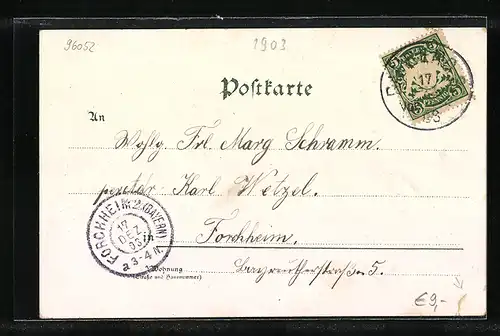 96052
1903
Postkarte
An
Wohlg Frl. Marg Schramm.
Karl Wetzel.
in Forchheim.
Wohnung
(Straße und Hausnummer)
Bayreutherstraße 5.
FORCHHEIM 2.(BAYERN)
17
DEZ
03
a 3-4 N.
5 5
17
03
€9,-